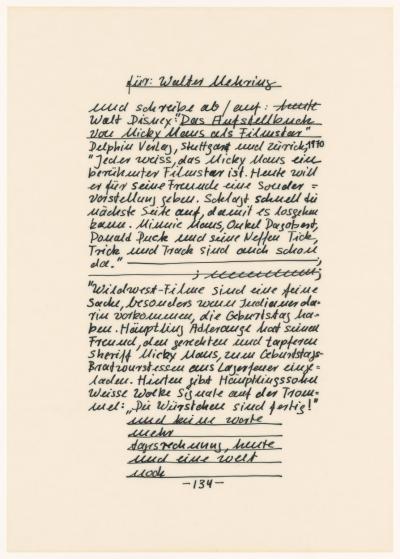 für: Walter Mehring
und schreibe ab / auf: heute
Walt Disney: "Das Aufstellbuch
von Micky Maus als Filmstar"
Delphin Verlag, Stuttgart und Zürich, 1970
"Jeder weiss, das Micky Maus ein
berühmter Filmstar ist. Heute will
er für seine Freunde eine Sonder=
vorstellung geben. Schlagt schnell die
nächste Seite auf, damit es losgehen
kann. Minnie Maus, Onkel Dagobert,
Donald Duck und seine Neffen Tick,
Trick und Track sind auch schon
da."
"Wildwest-Filme sind eine feine
Sache, besonders wenn Indianer da-
rin vorkommen, die Geburtstag ha-
ben. Häuptling Adlerauge hat seinen
Freund, den gerechten und tapferen
Sheriff Micky Maus, zum Geburtstags-
Bratwurstessen ans Lagerfeuer einge-
laden. Hinten gibt Häuptlingssohn
Weisse Wolke Signale auf der Trom-
mel: "Die Würstchen sind fertig!"
und keine worte
mehr
tagsrechnung, heute
und eine welt
noch
-134-